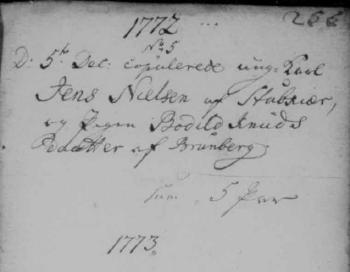 1772 ... 266
No 5
D: 5te Dec: copulerede ung-Karl
Jens Nielsen af Stubkiær,
og Pigen Bodild Knuds
Daatter af Brunberg
Sum 5 Par
1773.